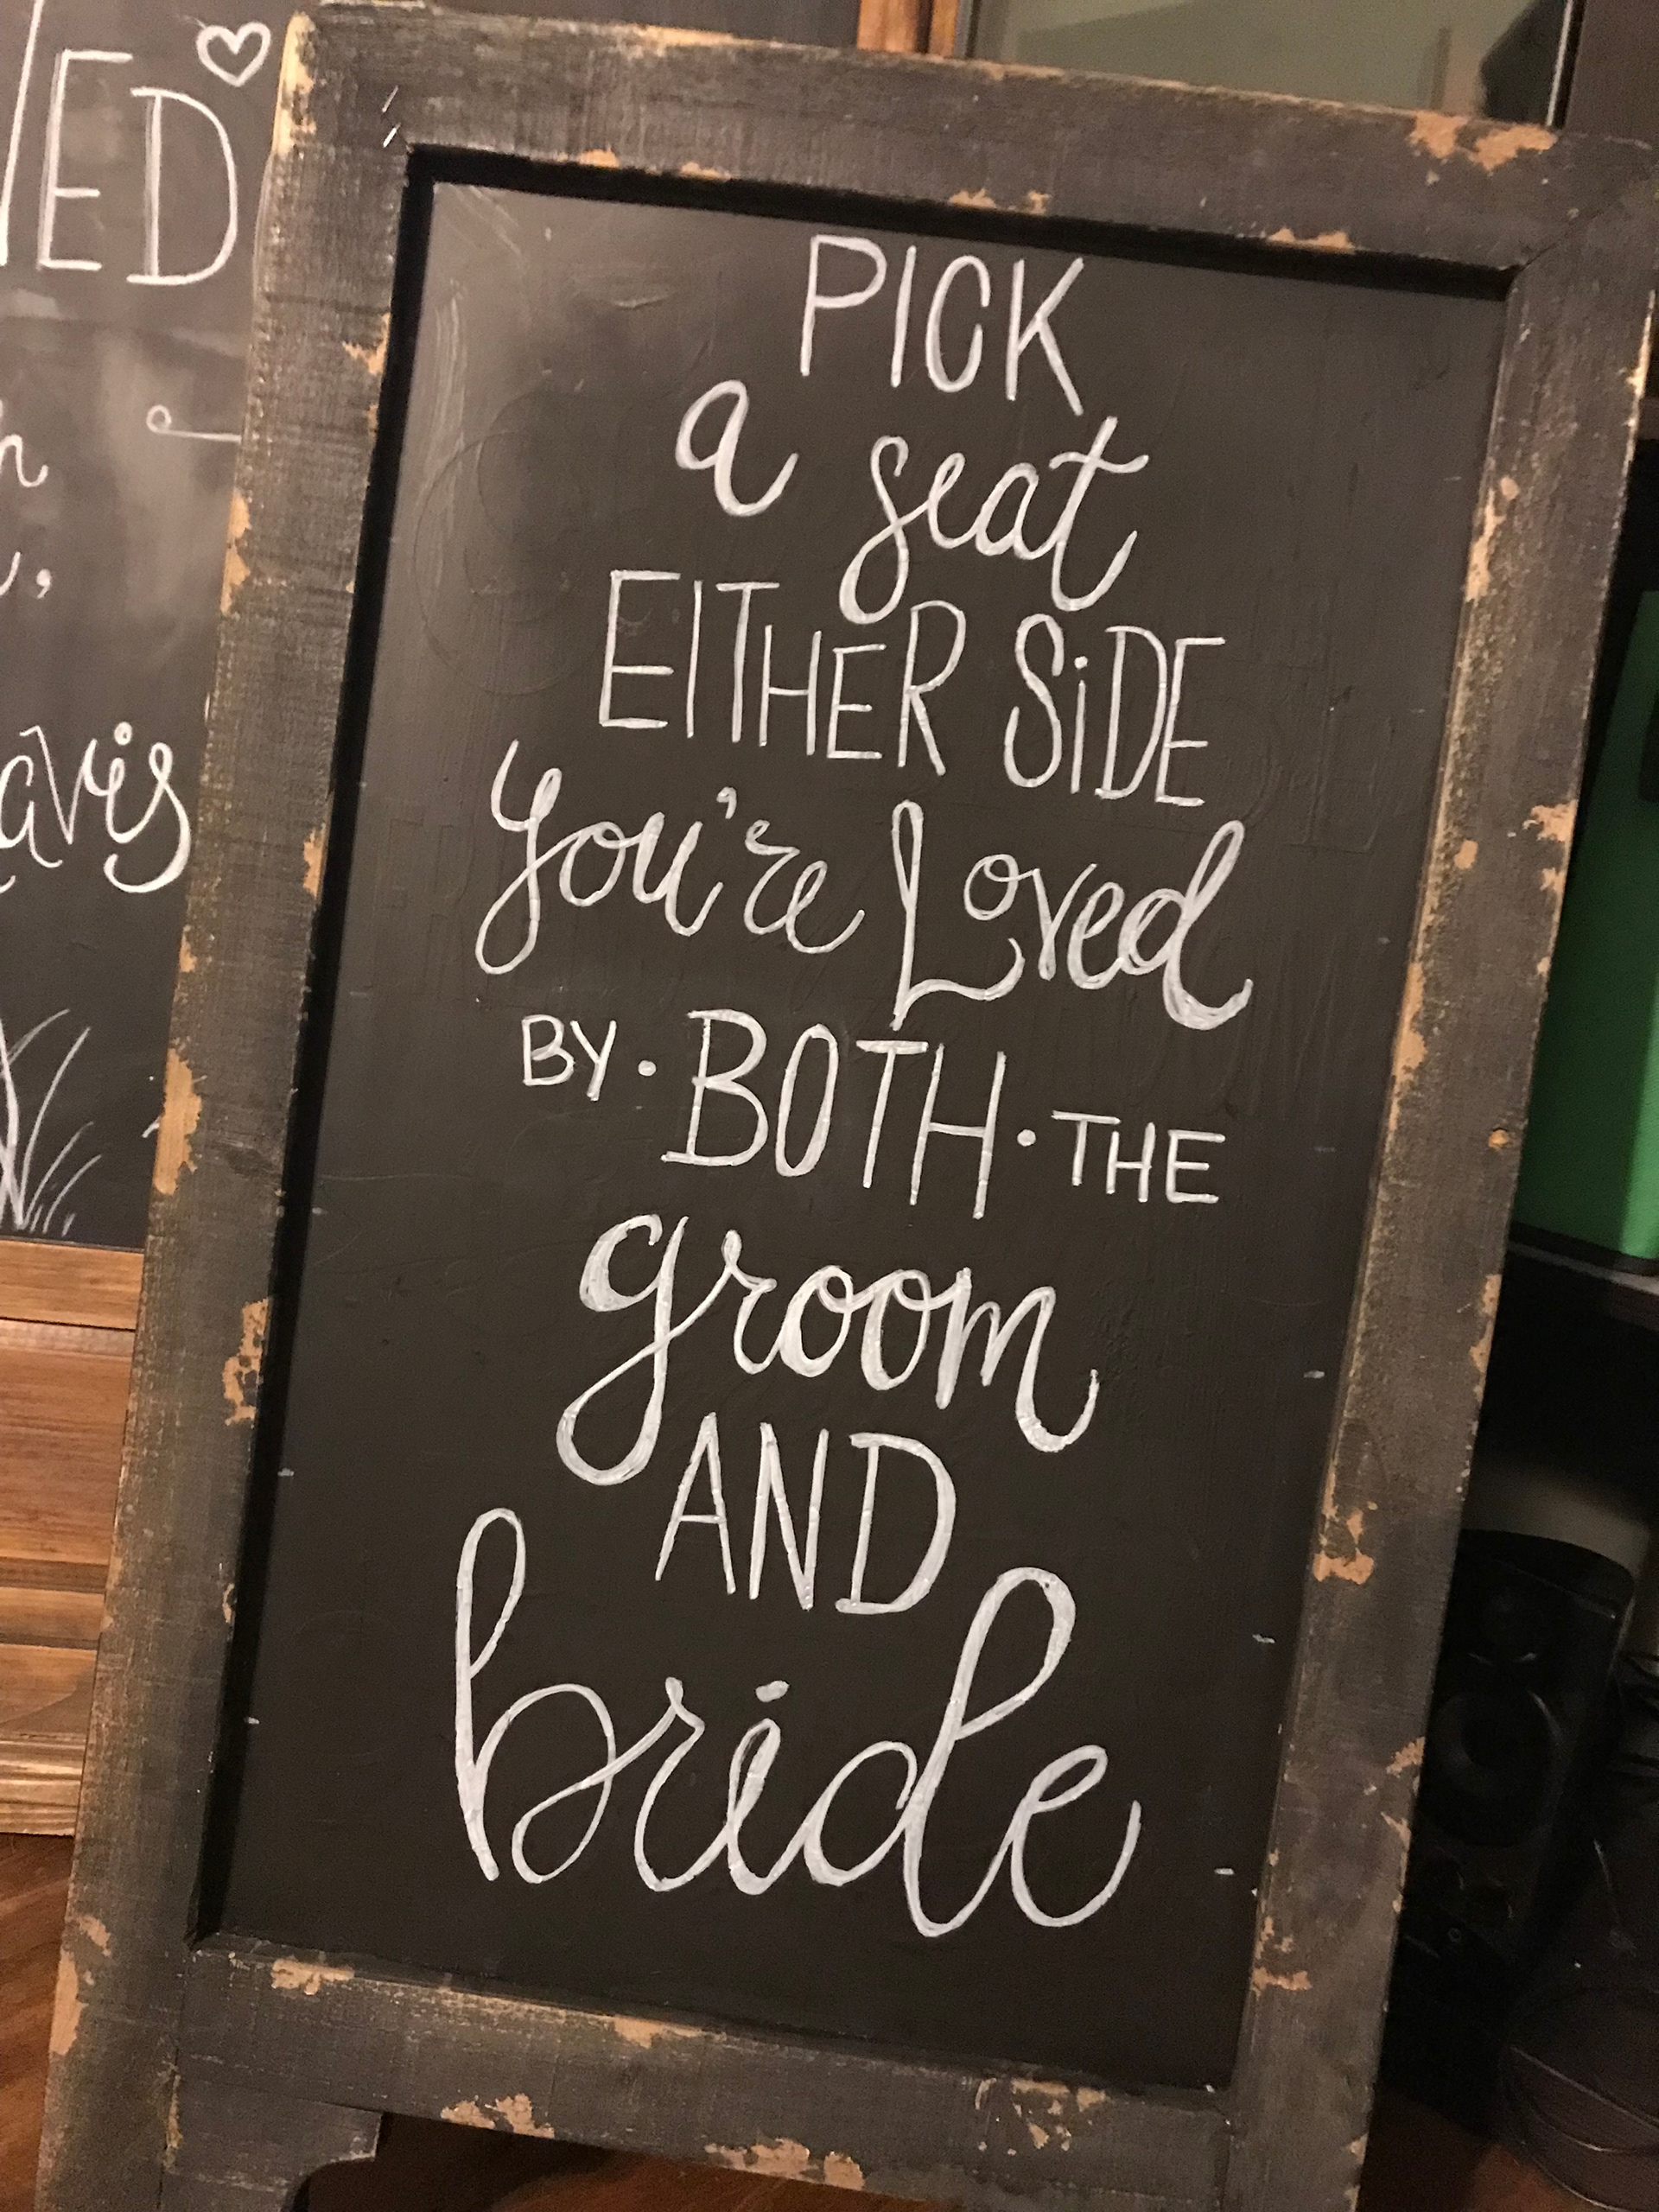 PICK
a seat
EITHER SiDE
you're Loved
BY · BOTH · THE
groom
AND
bride